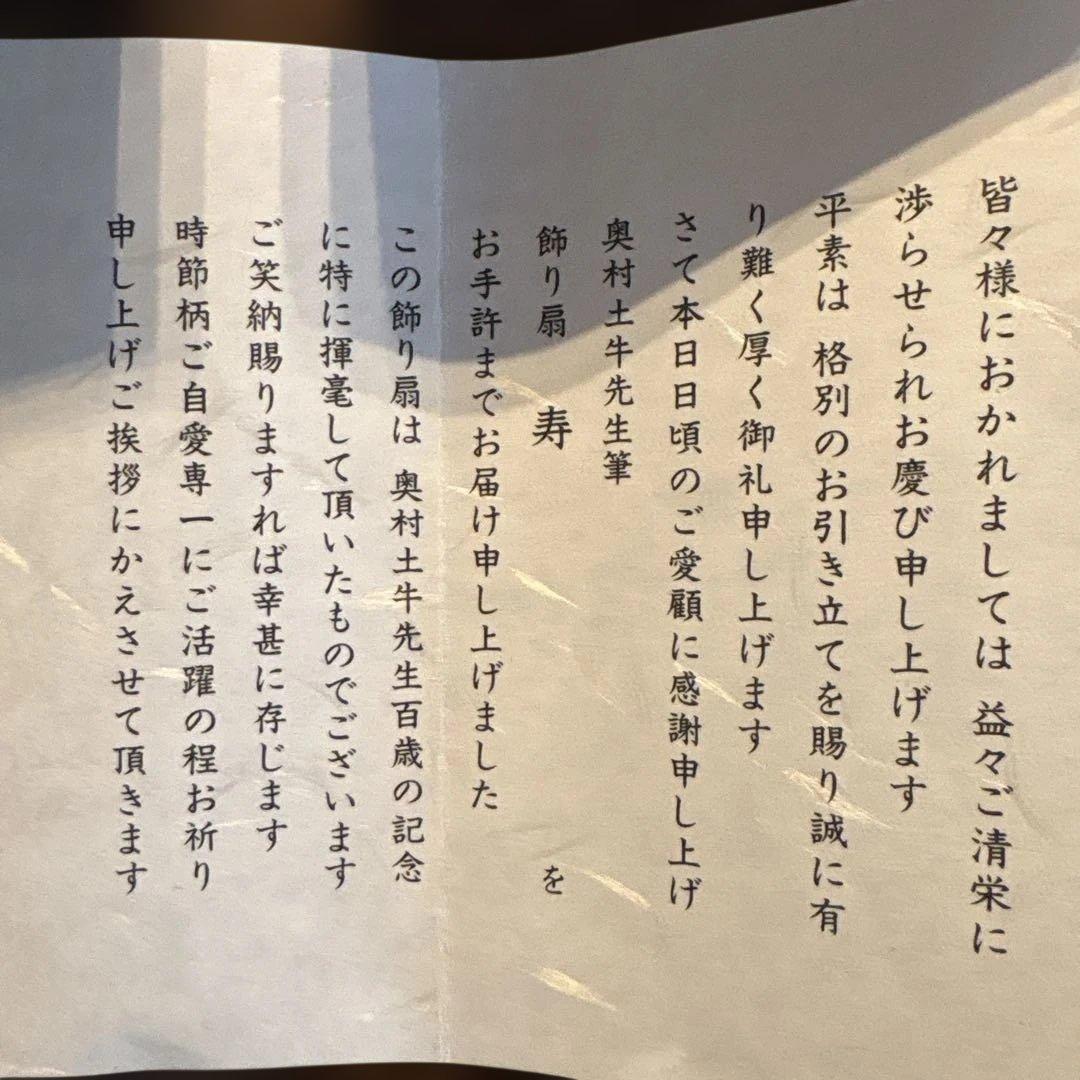 皆々様におかれましては 益々ご清栄に
渉らせられお慶び申し上げます
平素は 格別のお引き立てを賜り誠に有
り難く厚く御礼申し上げます
さて本日日頃のご愛顧に感謝申し上げ
奥村土牛先生筆
飾り扇 寿 を
お手許までお届け申し上げました
この飾り扇は 奥村土牛先生百歳の記念
に特に揮毫して頂いたものでございます
ご笑納賜りますれば幸甚に存じます
時節柄ご自愛専一にご活躍の程お祈り
申し上げご挨拶にかえさせて頂きます